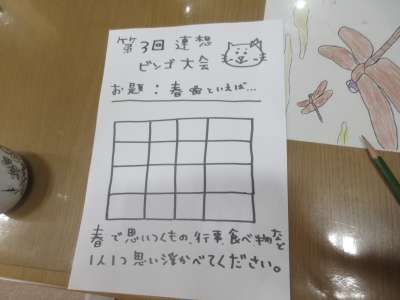 第3回 連想
ビンゴ大会
お題：春といえば...
春で思いつくもの、行事、食べ物など
1人1つ思い浮かべてください。